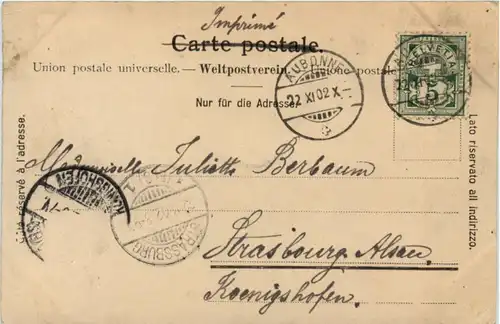 Imprimé
Carte postale.
Union postale universelle. — Weltpostverein. — Unione postale
Nur für die Adresse.
AUBONNE
22 XI 02 X
HELVETIA
5
Côté réservé à l'adresse.
Lato riservato all indirizzo.
Mademoiselle Juliette Berbaum
STRASSBURG
Strasbourg, Alsace,
Koenigshofen.